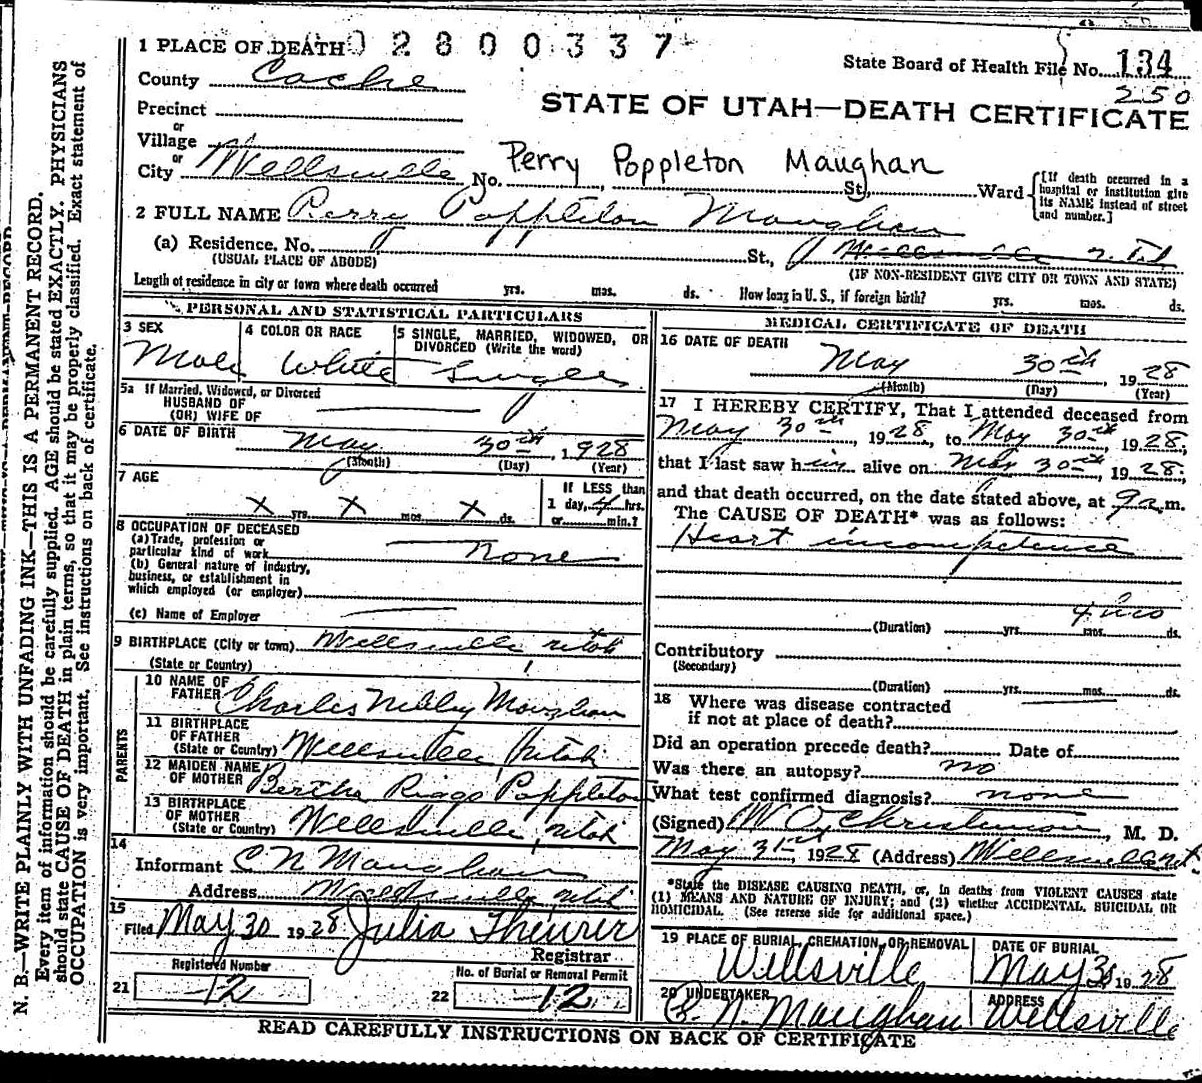 1 PLACE OF DEATH 0 2 8 0 0 3 3 7
County Cache
State Board of Health File No. 134
250
Precinct
or
Village
STATE OF UTAH—DEATH CERTIFICATE
or
City Wellsville No. St. Ward
Perry Poppleton Maughan
[If death occurred in a hospital or institution give its NAME instead of street and number.]
2 FULL NAME Perry Poppleton Maughan
(a) Residence. No. St., Wellsville Utah
(USUAL PLACE OF ABODE) (IF NON-RESIDENT GIVE CITY OR TOWN AND STATE)
Length of residence in city or town where death occurred yrs. mos. ds. How long in U. S., if foreign birth? yrs. mos. ds.
PERSONAL AND STATISTICAL PARTICULARS
3 SEX Male
4 COLOR OR RACE White
5 SINGLE, MARRIED, WIDOWED, OR DIVORCED (Write the word) Single
5a If Married, Widowed, or Divorced
HUSBAND OF
(OR) WIFE OF
6 DATE OF BIRTH May 30th, 1928
(Month) (Day) (Year)
7 AGE
x yrs. x mos. x ds.
If LESS than
1 day, 4 hrs.
or min.?
8 OCCUPATION OF DECEASED
(a) Trade, profession or
particular kind of work None
(b) General nature of industry,
business, or establishment in
which employed (or employer)
(c) Name of Employer
9 BIRTHPLACE (City or town) Wellsville Utah
(State or Country)
PARENTS
10 NAME OF FATHER Charles Nibley Maughan
11 BIRTHPLACE OF FATHER (State or Country) Wellsville, Utah
12 MAIDEN NAME OF MOTHER Bertha Riggs Poppleton
13 BIRTHPLACE OF MOTHER (State or Country) Wellsville, Utah
14
Informant C N Maughan
Address Wellsville, Utah
15
Filed May 30 1928 Julia Theurer
Registrar
Registered Number
21 12
No. of Burial or Removal Permit
22 12
MEDICAL CERTIFICATE OF DEATH
16 DATE OF DEATH
May 30th, 1928
(Month) (Day) (Year)
17 I HEREBY CERTIFY, That I attended deceased from
May 30th, 1928, to May 30th, 1928,
that I last saw him alive on May 30th, 1928,
and that death occurred, on the date stated above, at 9 a.m.
The CAUSE OF DEATH* was as follows:
Heart incompetence
4 hrs
(Duration) yrs. mos. ds.
Contributory
(Secondary)
(Duration) yrs. mos. ds.
18 Where was disease contracted
if not at place of death?
Did an operation precede death? Date of
Was there an autopsy? no
What test confirmed diagnosis? none
(Signed) W O Christenson, M. D.
May 31st, 1928 (Address)
*State the DISEASE CAUSING DEATH, or, in deaths from VIOLENT CAUSES state
(1) MEANS AND NATURE OF INJURY; and (2) whether ACCIDENTAL, SUICIDAL OR
HOMICIDAL. (See reverse side for additional space.)
19 PLACE OF BURIAL, CREMATION, OR REMOVAL
Wellsville
DATE OF BURIAL
May 30 1928
20 UNDERTAKER
C. N. Maughan
ADDRESS
Wellsville
READ CAREFULLY INSTRUCTIONS ON BACK OF CERTIFICATE
N. B.—WRITE PLAINLY WITH UNFADING INK—THIS IS A PERMANENT RECORD.
Every item of information should be carefully supplied. AGE should be stated EXACTLY. PHYSICIANS
should state CAUSE OF DEATH in plain terms, so that it may be properly classified. Exact statement of
OCCUPATION is very important. See instructions on back of certificate.